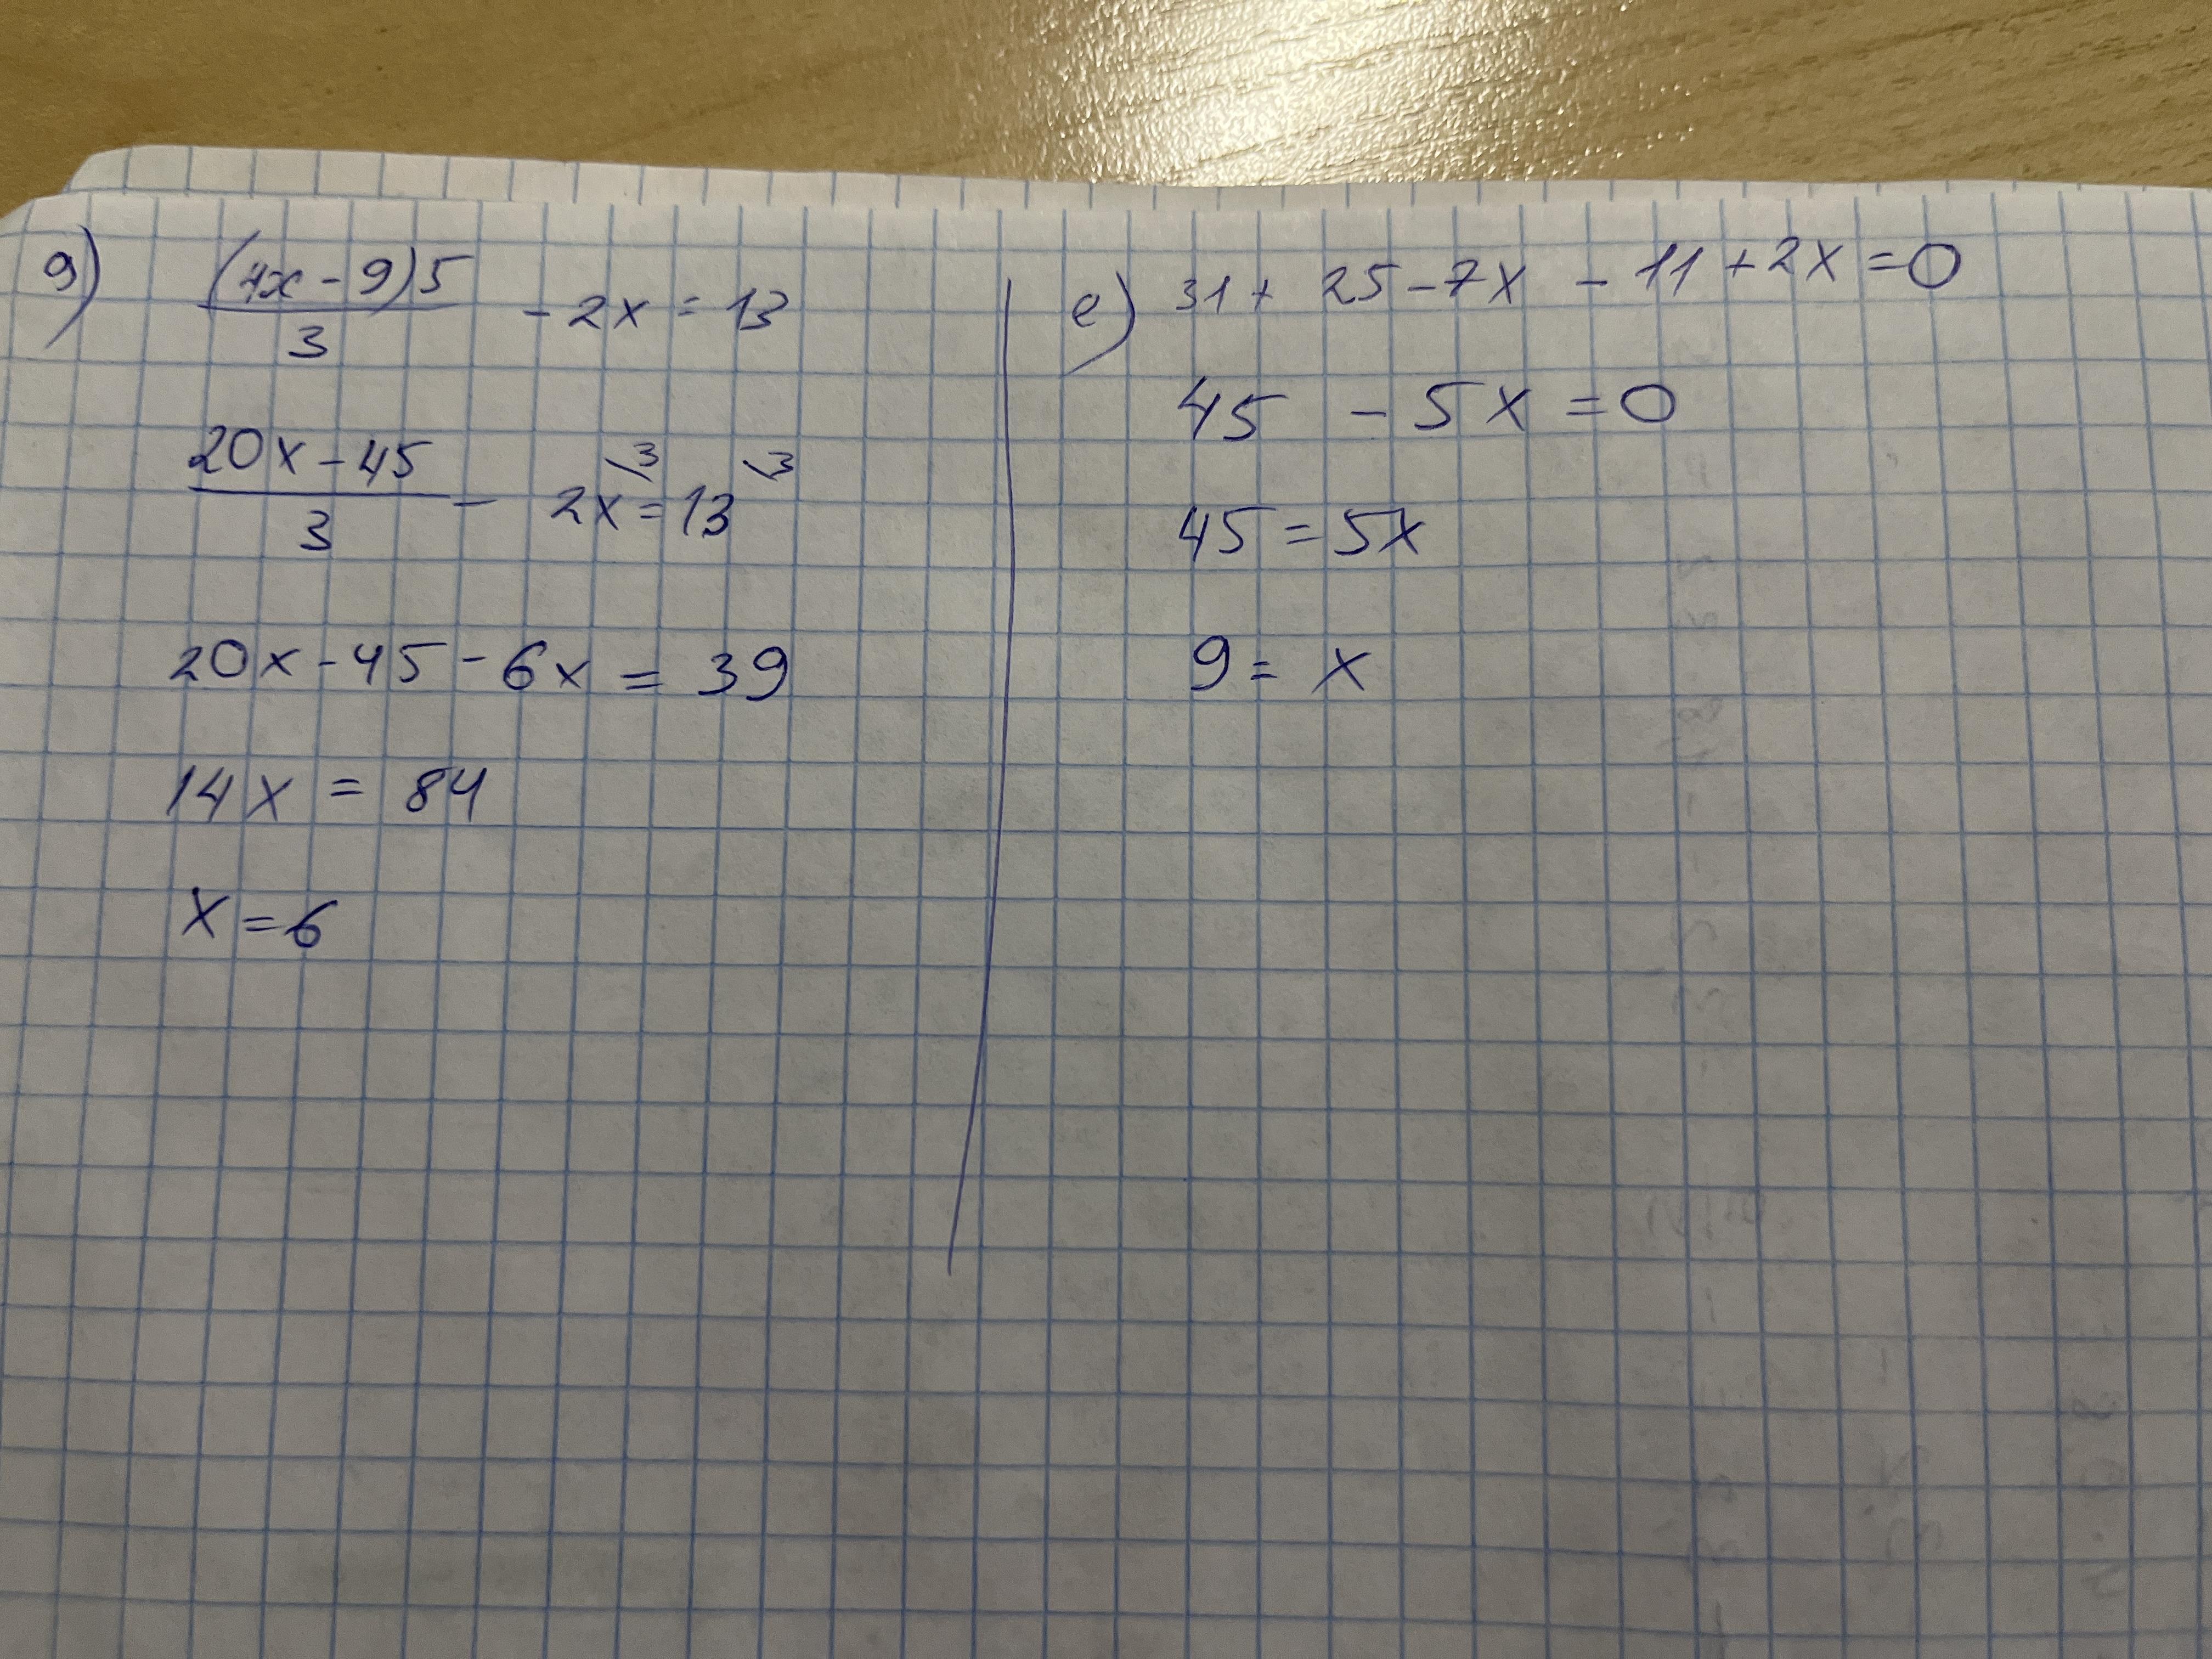 g) (4x-9)5/3 - 2x = 13
(20x-45)/3 - 2x\3 = 13\3
20x-45-6x = 39
14x = 84
x=6
e) 31+ 25-7x - 11+2x=0
45 - 5x=0
45=5x
9= x